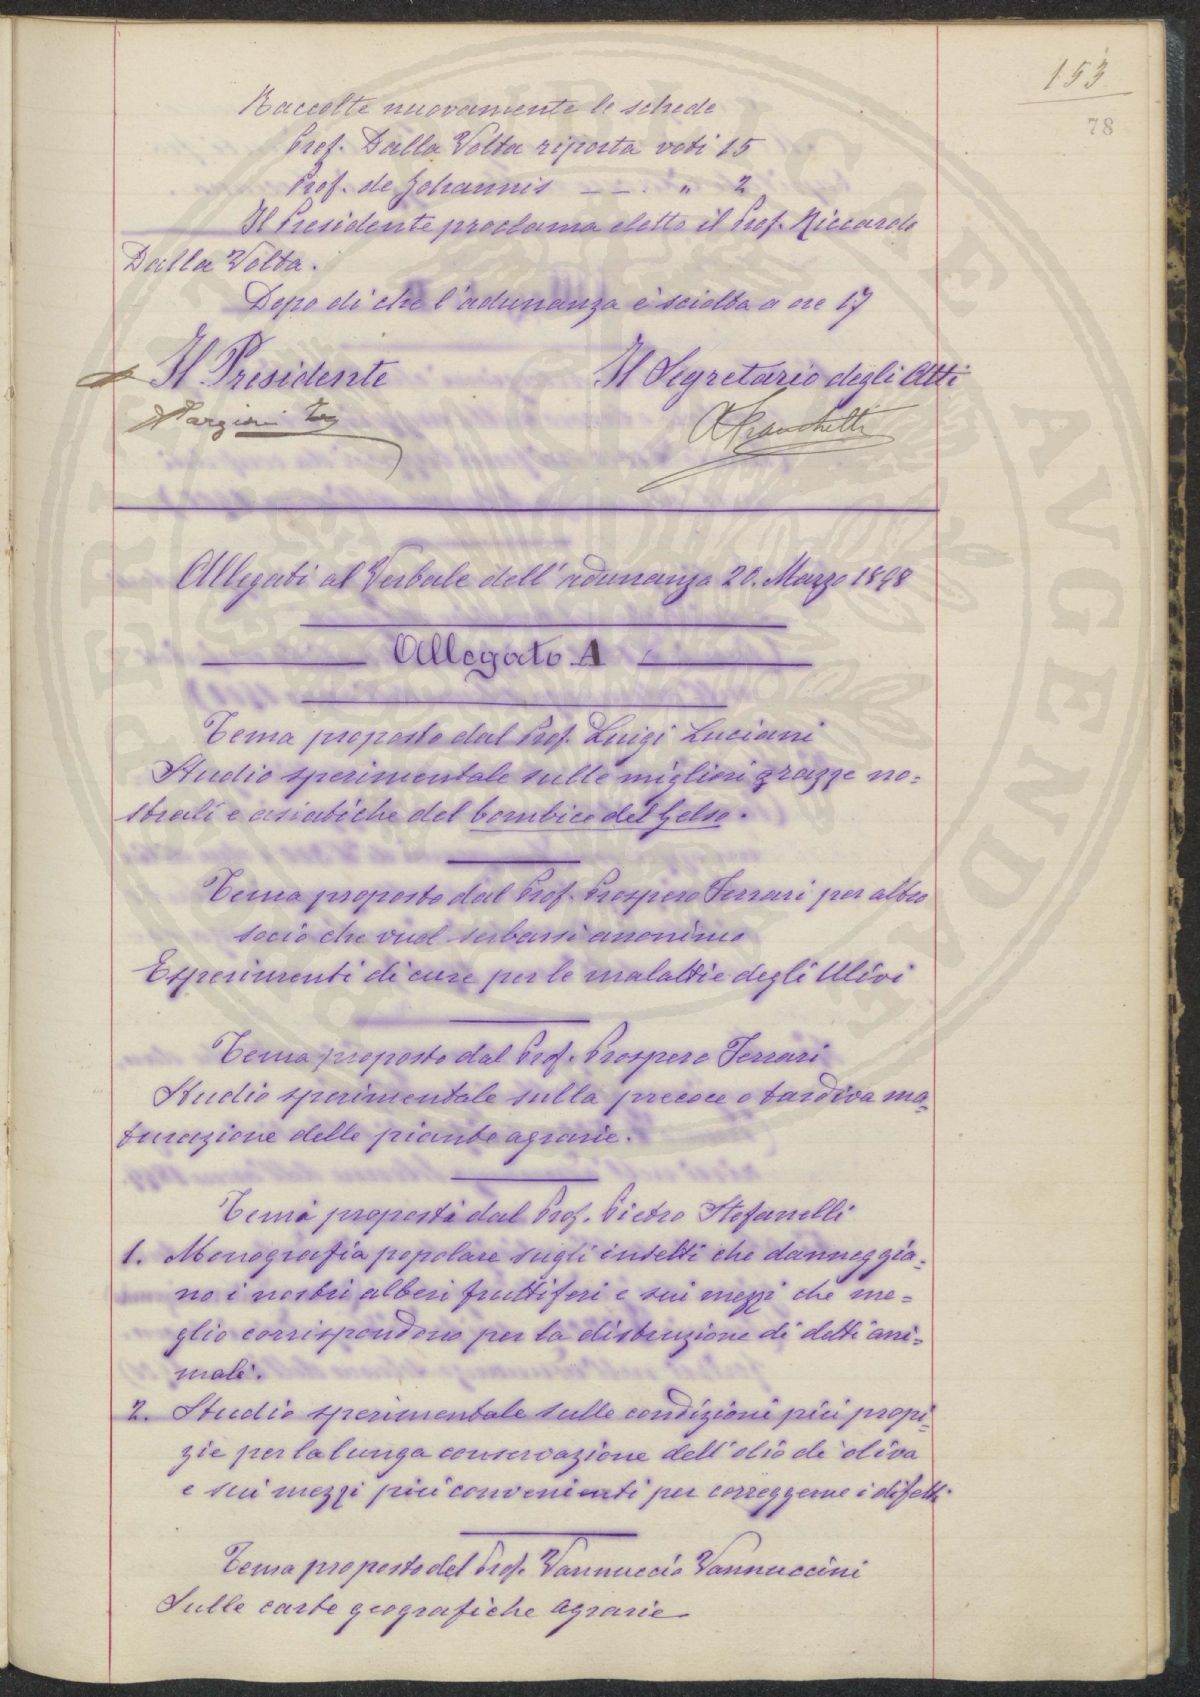 153
78
Raccolte nuovamente le schede
Prof. Dalla Volta riporta voti 15
Prof. de Johannis — — . „ 2
Il Presidente proclama eletto il Prof. Riccardo
Dalla Volta.
Dopo di che l'adunanza è sciolta a ore 17
Il Presidente Il Segretario degli Atti
A Franchetti
Allegati al Verbale dell'adunanza 20. Marzo 1898
Allegato A
Tema proposto dal Prof. Luigi Luciani
Studio sperimentale sulle migliori razze no=
strali e asiatiche del bombice del Gelso.
Tema proposto dal Prof. Prospero Ferrari per altro
socio che vuol serbarsi anonimo
Esperimenti di cure per le malattie degli Ulivi
Tema proposto dal Prof. Prospero Ferrari
Studio sperimentale sulla precoce o tardiva ma=
turazione delle piante agrarie.
Temi proposti dal Prof. Pietro Stefanelli
1. Monografia popolare sugli insetti che danneggia=
no i nostri alberi fruttiferi e sui mezzi che me=
glio corrispondono per la distruzione di detti ani=
mali.
2. Studio sperimentale sulle condizioni più propi=
zie per la lunga conservazione dell'olio di oliva
e sui mezzi più convenienti per correggerne i difetti
Tema proposto del Prof. Vannuccio Vannuccini
Sulle carte geografiche agrarie